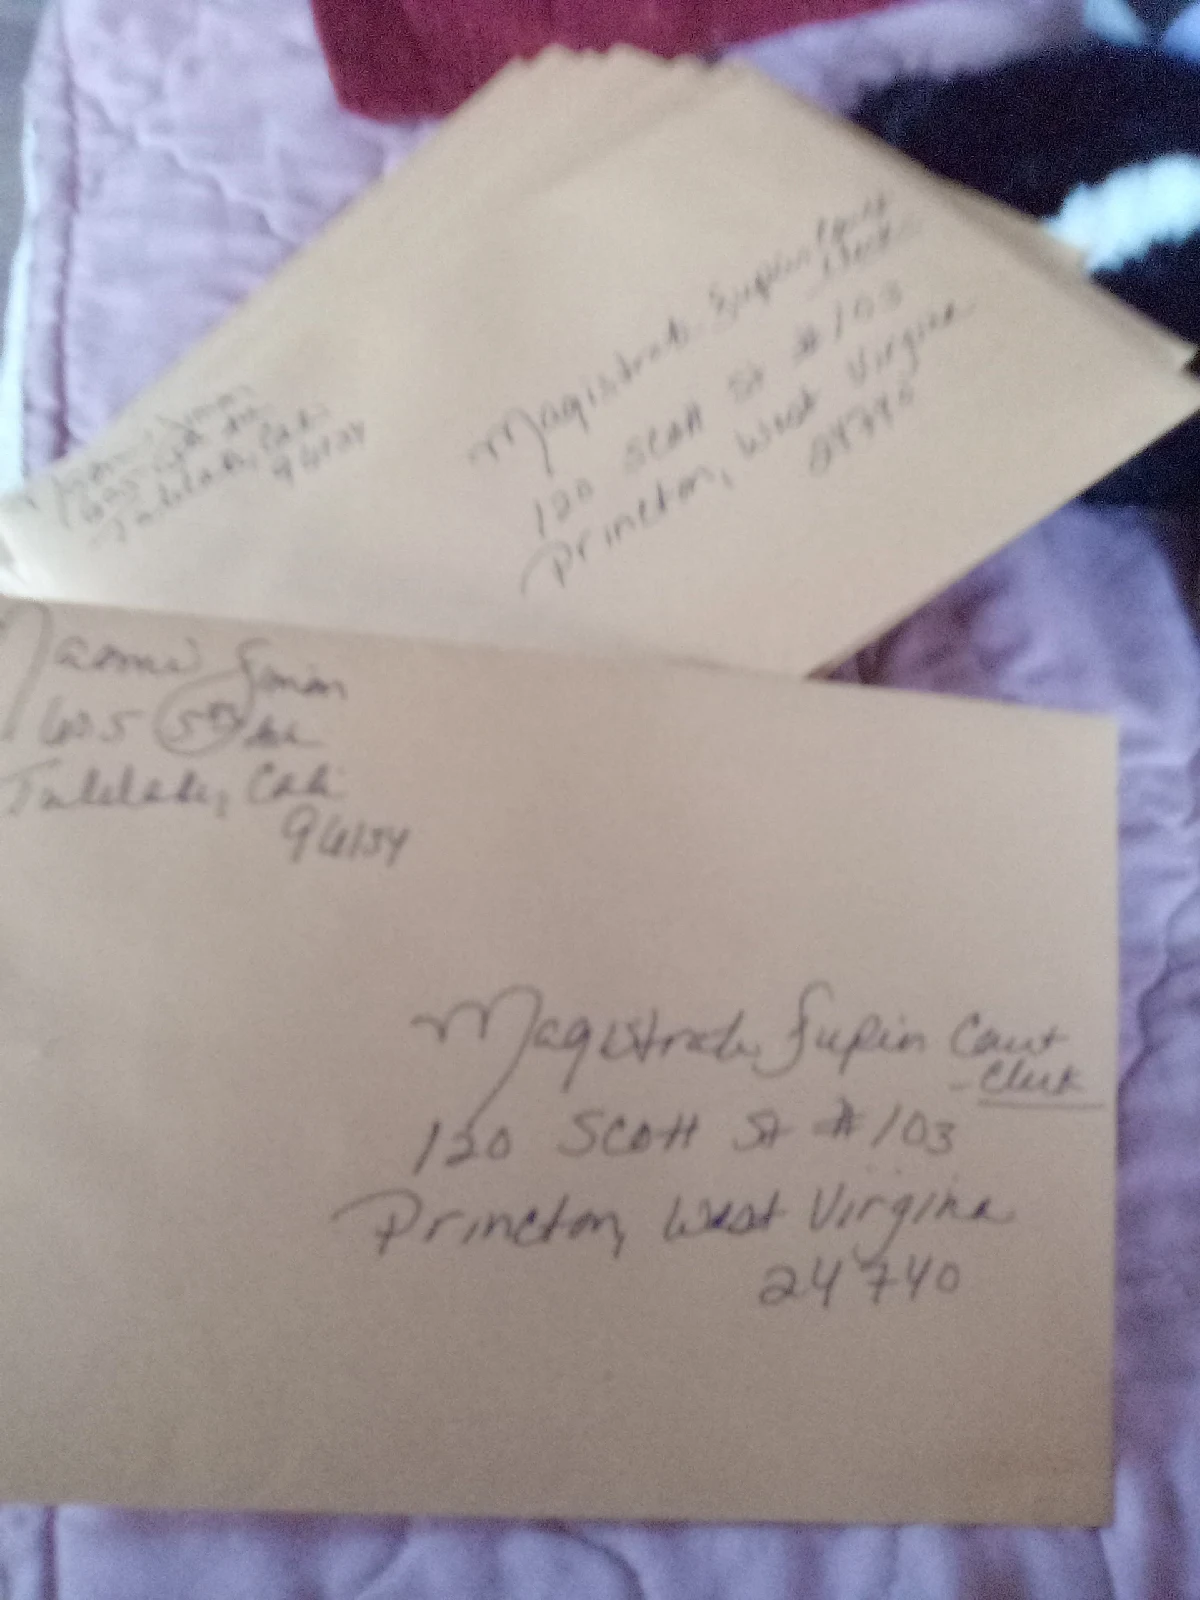 Magistrate Supin Court
Clerk
120 Scott St #103
Princeton, West Virgina
24740
Naomi Simon
605 5th Ave
Tulelake, Cali
96134
Magistrate Supin Court
- Clerk
120 Scott St #103
Princeton, West Virgina
24740